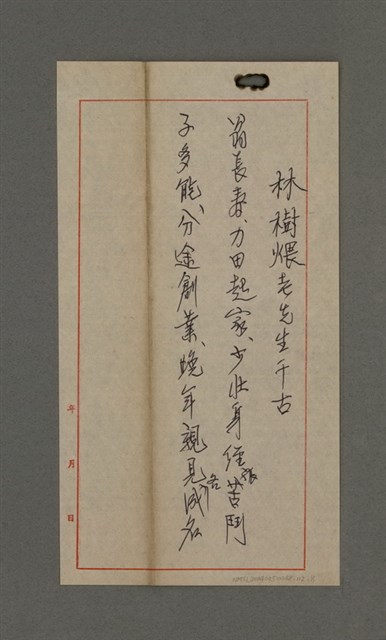 林樹煨老先生千古
翁長壽、力田起家、少壯身經苦鬥
張
子多能、分途創業、晚年親見成名
各
年 月 日